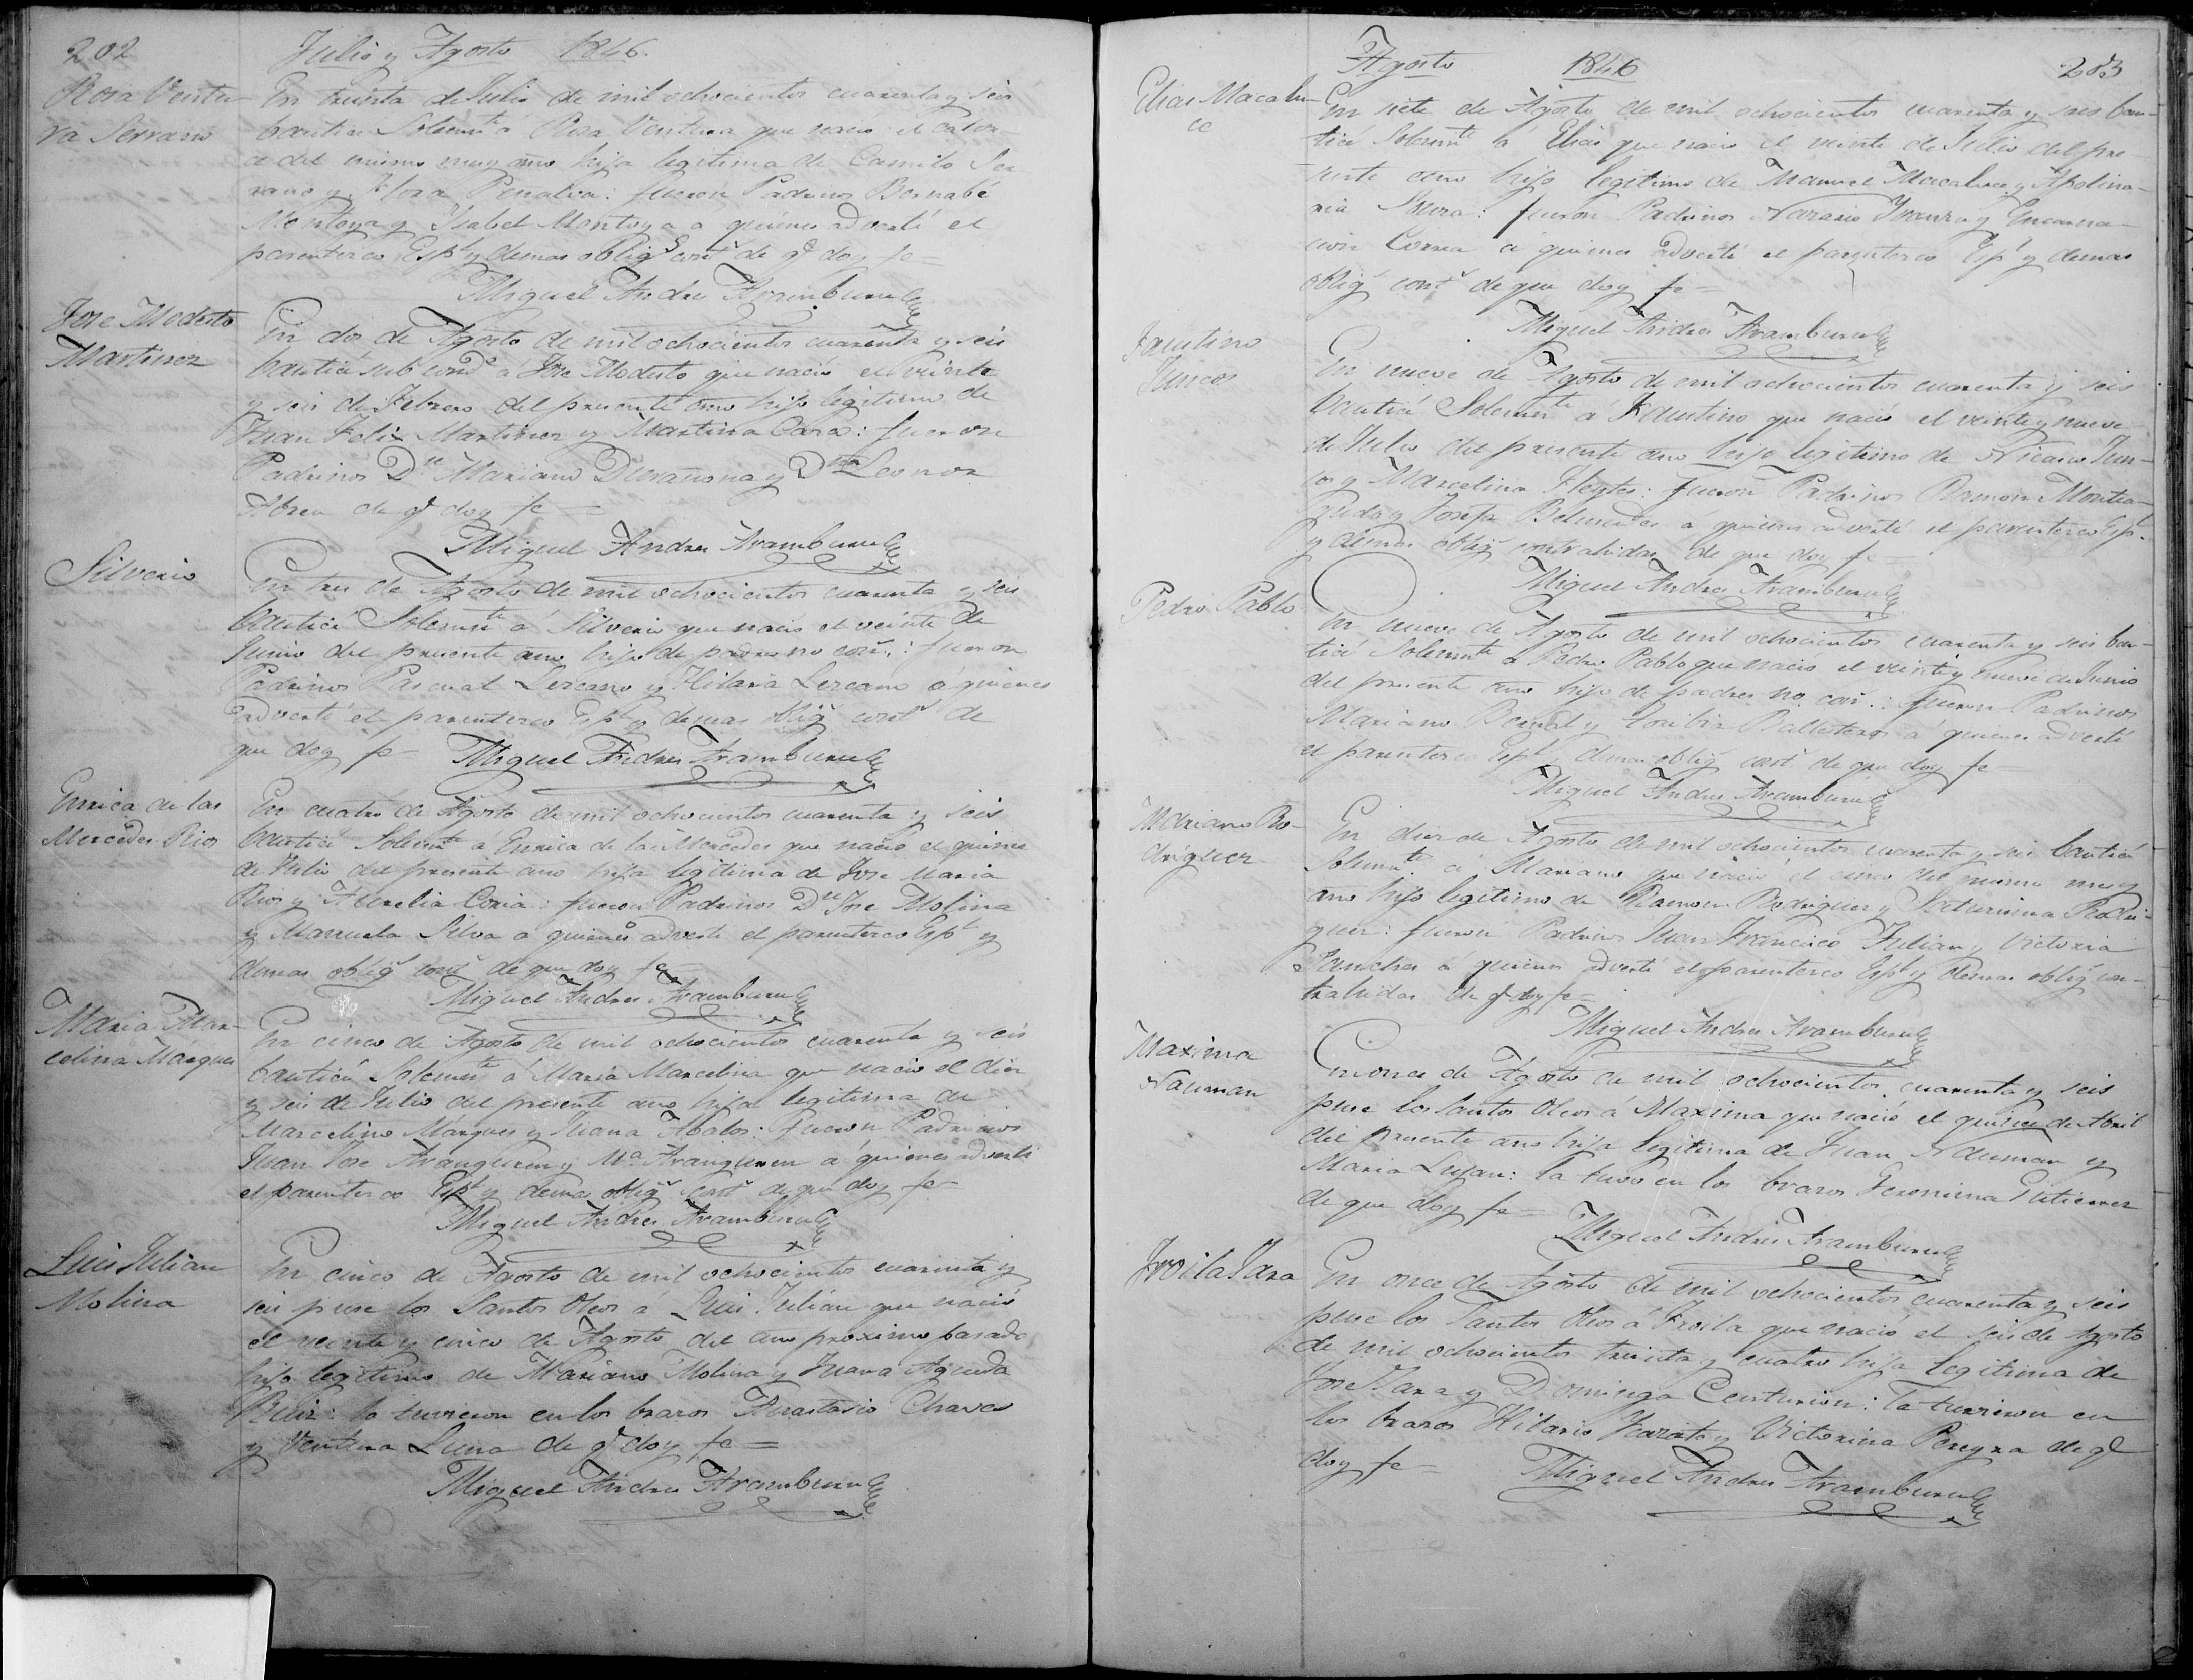 202
Julio y Agosto 1846.
Rosa Ventu-
ra Serrano
En treinta de Julio de mil ochocientos cuarenta y seis
bauticé Solemnte á Rosa Ventura que nació el cator-
ce del mismo mes y año hija legitima de Camilo Ser-
rano y Flora Penalva: fueron Padrinos Bernabé
Montoya y Isabel Montoya a quienes advertí el
parentesco Espl y demas oblig.s cont.s de q.e doy fe =
Miguel Andres Aramburu
Jose Modesto
Martinez
En dos de Agosto de mil ochocientos cuarenta y seis
bauticé sub cond.e á Jose Modesto que nació el veinte
y seis de Febrero del presente año hijo legitimo de
Juan Felix Martinez y Martina Caro: fueron
Padrinos Dn Mariano Durañona y Dña Leonor
Abreu de q.e doy fe =
Miguel Andres Aramburu
Silverio
En tres de Agosto de mil ochocientos cuarenta y seis
bauticé Solemnte á Silverio que nació el veinte de
Junio del presente año hijo de padres no con.s: fueron
Padrinos Pascual Lezcano y Hilaria Lezcano á quienes
advertí el parentesco Espl y demas oblig.s cont.s de
que doy fe - Miguel Andres Aramburu
Enrica de las
Mercedes Rios
En cuatro de Agosto de mil ochocientos cuarenta y seis
bauticé Solemnte á Enrica de las Mercedes que nació el quince
de Julio del presente año hija legitima de Jose Maria
Rios y Aurelia Coria: fueron Padrinos Dn Jose Molina
y Manuela Silva a quienes advertí el parentesco Espl y
demas oblig.s cont.s de que doy fe
Miguel Andres Aramburu
Maria Mar-
celina Márques
En cinco de Agosto de mil ochocientos cuarenta y seis
bauticé Solemnte á Maria Marcelina que nació el diez
y seis de Julio del presente año hija legitima de
Marcelino Márques y Juana Abalos: fueron Padrinos
Juan Jose Aranguren y Ma Aranguren á quienes advertí
el parentesco Espl y demas oblig.s cont.s de que doy fe -
Miguel Andres Aramburu
Luis Julian
Molina
En cinco de Agosto de mil ochocientos cuarenta y
seis puse los Santos Oleos á Luis Julián que nació
el veinte y cinco de Agosto del año proximo pasado
hijo legitimo de Mariano Molina y Juana Agueda
Ruiz: lo tuvieron en los brazos Anastasio Chaves
y Ventura Luna de q.e doy fe =
Miguel Andres Aramburu
Agosto 1846 203
Elias Macalu-
ce
En siete de Agosto de mil ochocientos cuarenta y seis bau-
ticé Solemnte á Elias que nació el veinte de Julio del pre-
sente año hijo legitimo de Manuel Macaluce y Apolina-
ria : fueron Padrinos Nazario y Encarna-
cion Correa á quienes advertí el parentesco Espl y demas
oblig.s cont.s de que doy fe =
Miguel Andres Aramburu
Faustino
Juncos
En nueve de Agosto de mil ochocientos cuarenta y seis
bauticé Solemnte á Faustino que nació el veinte y nueve
de Julio del presente año hijo legitimo de Nicacio Jun-
cos y Marcelina Fleytes: fueron Padrinos Ramon Montea-
gudo y Josefa á quienes advertí el parentesco Espl.
y demas oblig.s contrahidas de que doy fe -
Miguel Andres Aramburu
Pedro Pablo
En nueve de Agosto de mil ochocientos cuarenta y seis bau-
ticé Solemnte á Pedro Pablo que nació el veinte y nueve de Junio
del presente año hijo de padres no con.s: fueron Padrinos
Mariano Bernal y Toribia Ballesteros á quienes advertí
el parentesco Espl y demas oblig.s cont.s de que doy fe -
Miguel Andres Aramburu
Mariano Ro-
driguez
En diez de Agosto de mil ochocientos cuarenta y seis bauticé
Solemnte á Mariano que nació el cinco del mismo mes y
año hijo legitimo de Ramon Rodriguez y Saturnina Rodri-
guez: fueron Padrinos Juan Francisco Julian y Victoria
Sanches á quienes advertí el parentesco Espl y demas oblig.s con-
trahidas de q.e doy fe =
Miguel Andres Aramburu
Maxima
Nauman
En once de Agosto de mil ochocientos cuarenta y seis
puse los Santos Oleos á Maxima que nació el quince de Abril
del presente año hija legitima de Juan Nauman y
Maria Lujan: la tuvo en los brazos Jeronima Gutierrez
de que doy fe =
Miguel Andres Aramburu
Froila Jara
En once de Agosto de mil ochocientos cuarenta y seis
puse los Santos Oleos á Froila que nació el seis de Agosto
de mil ochocientos treinta y cuatro hija legitima de
Jose Jara y Dominga Centurion: la tuvieron en
los brazos Hilario y Victorina Pereyra de q.e
doy fe -
Miguel Andres Aramburu